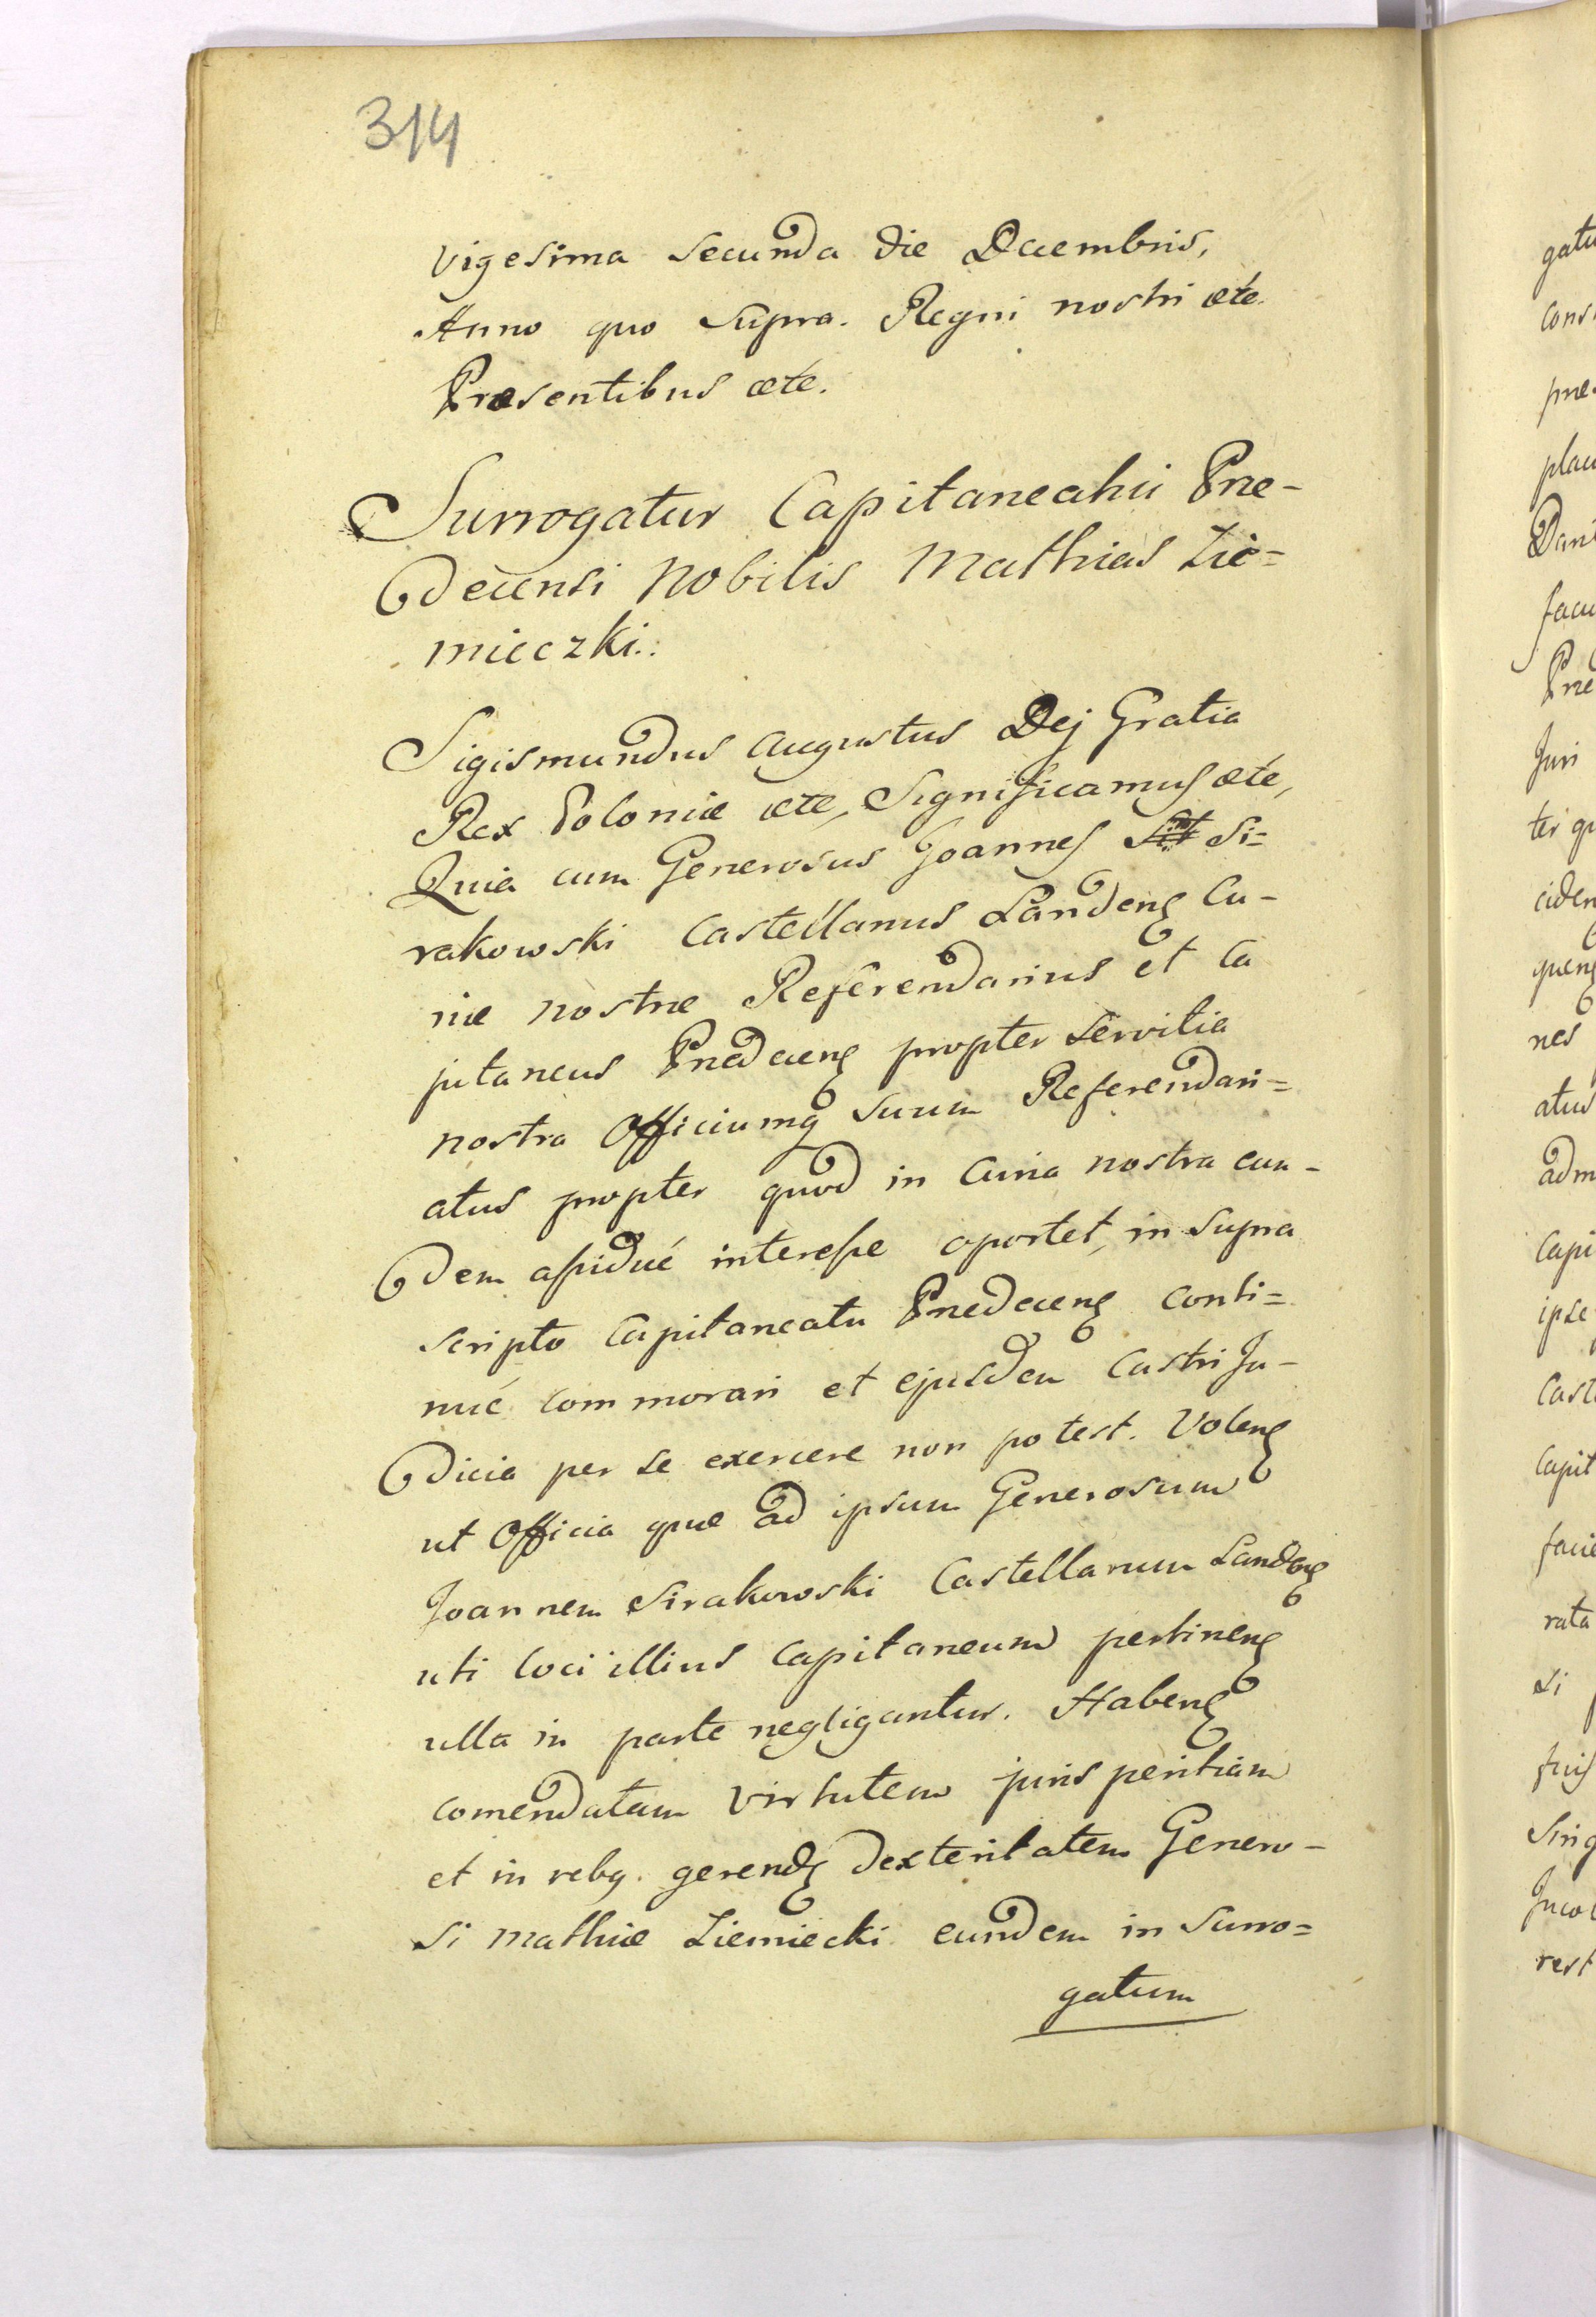 314
vigesima secunda die Decembris,
Anno quo supra. Regni nostri ætc.
Præsentibus ætc.
Surrogatur Capitaneatui Præ-
decensi Nobilis Mathias Zie=
mieczki.
Sigismundus Augustus Dej Gratia
Rex Poloniæ ætc, Significamus ætc,
Quia cum Generosus Joannes Si=
rakowski Castellanus Landens Cu-
riæ nostræ Referendarius et Ca
pitaneus Prædecens propter servitia
nostra Officiumq suum Referendari=
atus propter quod in Curia nostra eun-
dem assidué interesse oportet, in supra
scripto Capitaneatu Prædecens conti=
nué commorari et ejusdem Castri Ju-
dicia per se exercere non potest. Volens
ut Officia quæ ad ipsum Generosum
Joannem Sirakowski Castellanum Landens
uti loci illius Capitaneum pertinens
ulla in parte negligantur. Habens
comendatam virtutem juris peritiam
et in rebq. gerends dexteritatem Genero-
si Mathiæ Ziemiecki eundem in Surro=
gatum